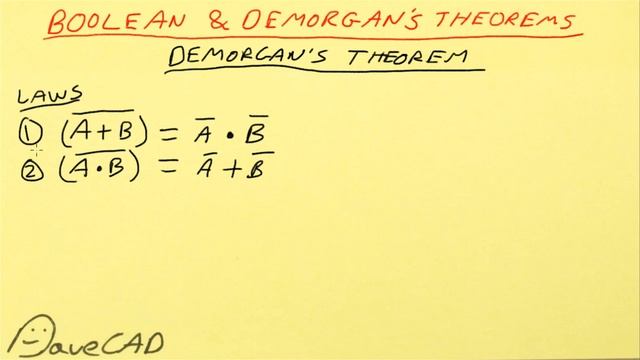 BOOLEAN & DEMORGAN'S THEOREMS
DEMORGAN'S THEOREM
LAWS
① (A̅ ̅+̅ ̅B̅) = A̅ • B̅
② (A̅ ̅•̅ ̅B̅) = A̅ + B̅
DaveCAD